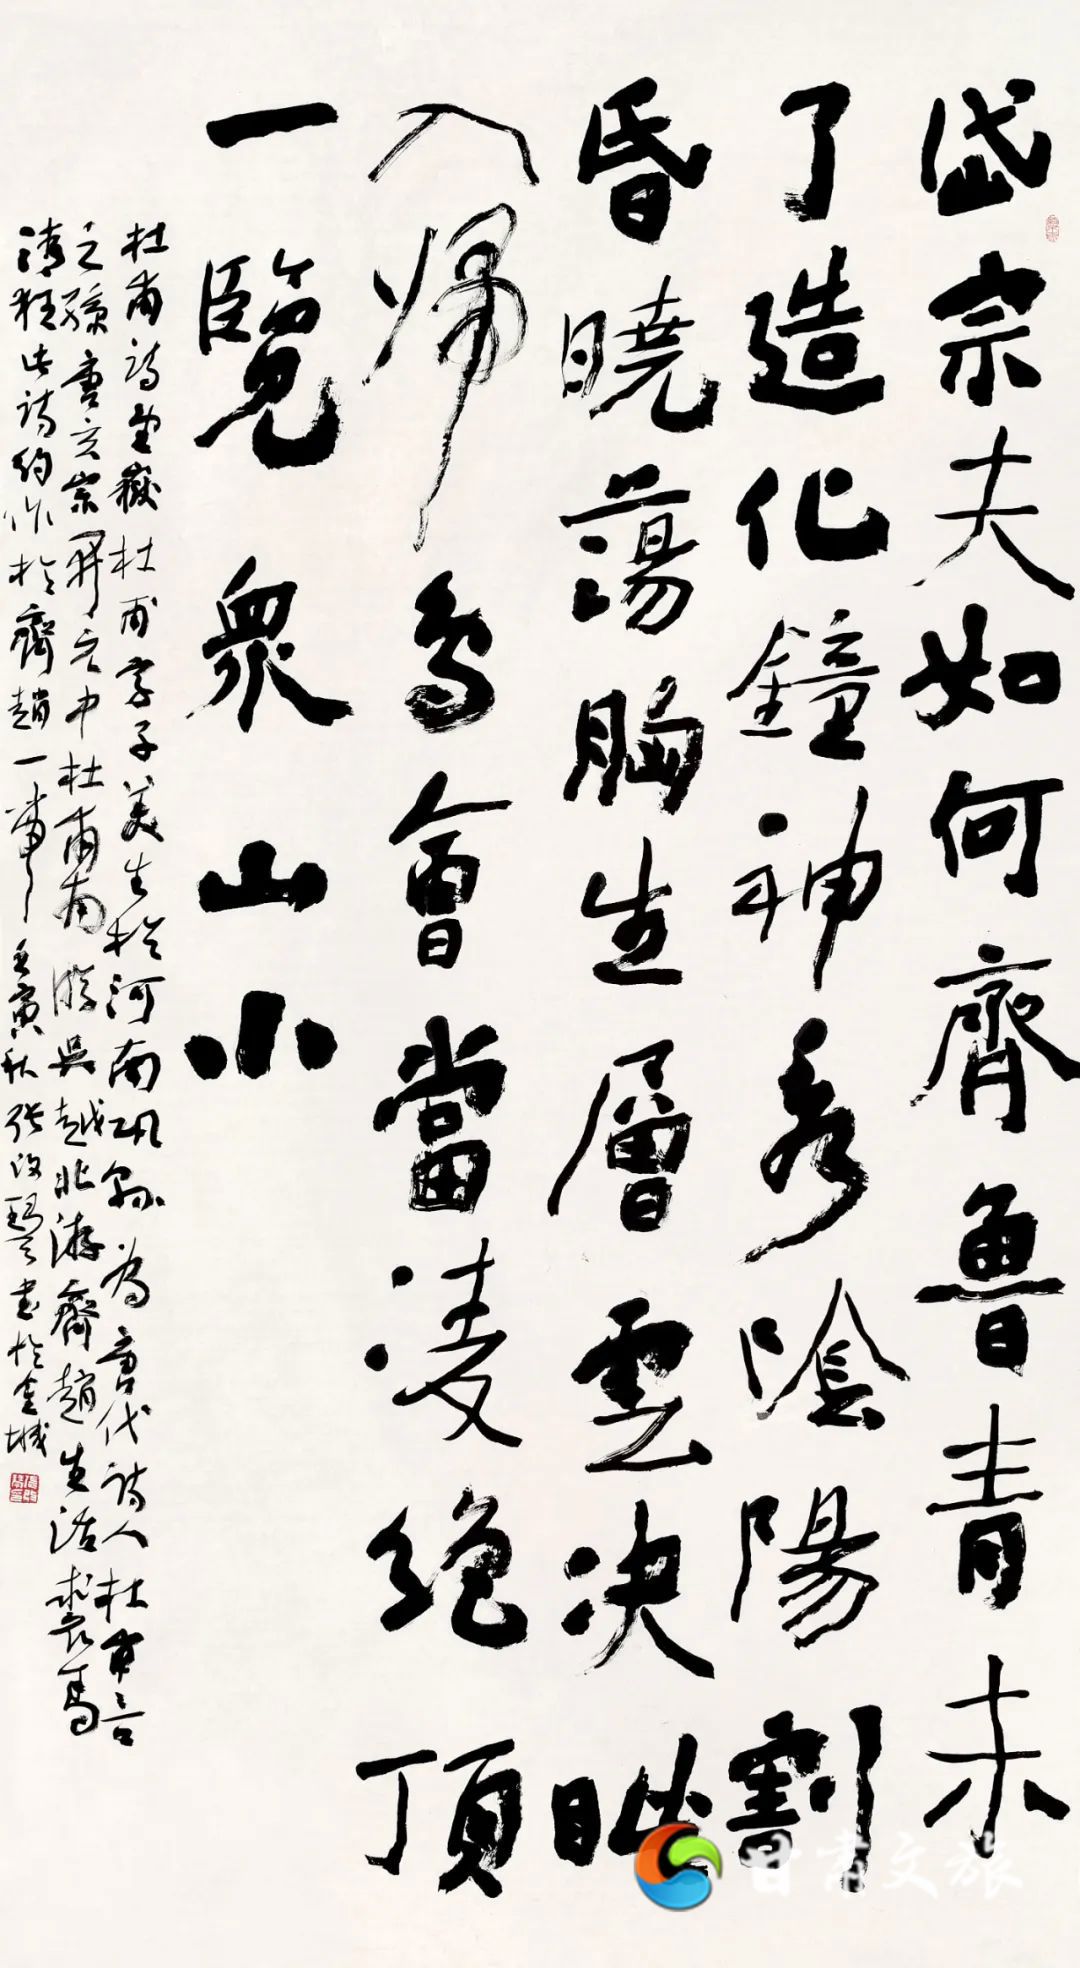 岱宗夫如何齊魯青未
了造化鐘神秀陰陽割
昏曉蕩胸生層雲决眦
入帰鳥會當凌絶頂
一覽眾山小
杜甫詩望嶽杜甫字子美生於河南巩縣為唐代詩人杜審言
之孫唐玄宗開元中杜甫南游吳越北游齊趙生活裘馬
清狂此詩約作於齊趙一帶壬寅秋張改琴書於金城
甘肃文旅